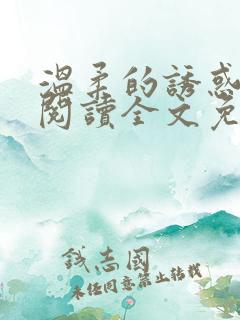 溫柔的誘惑
閱讀全文免
錢志國
未經同意禁止轉載